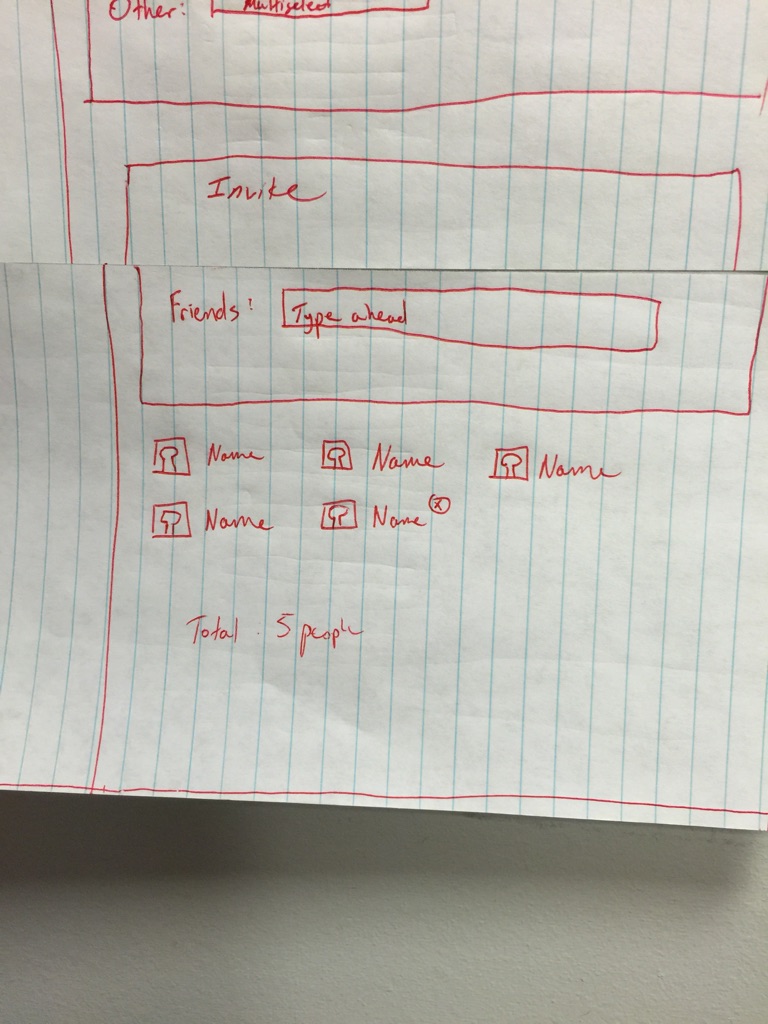 Other: Multiselect
Invite
Friends: Type ahead
Name Name Name
Name Name x
Total . 5 people